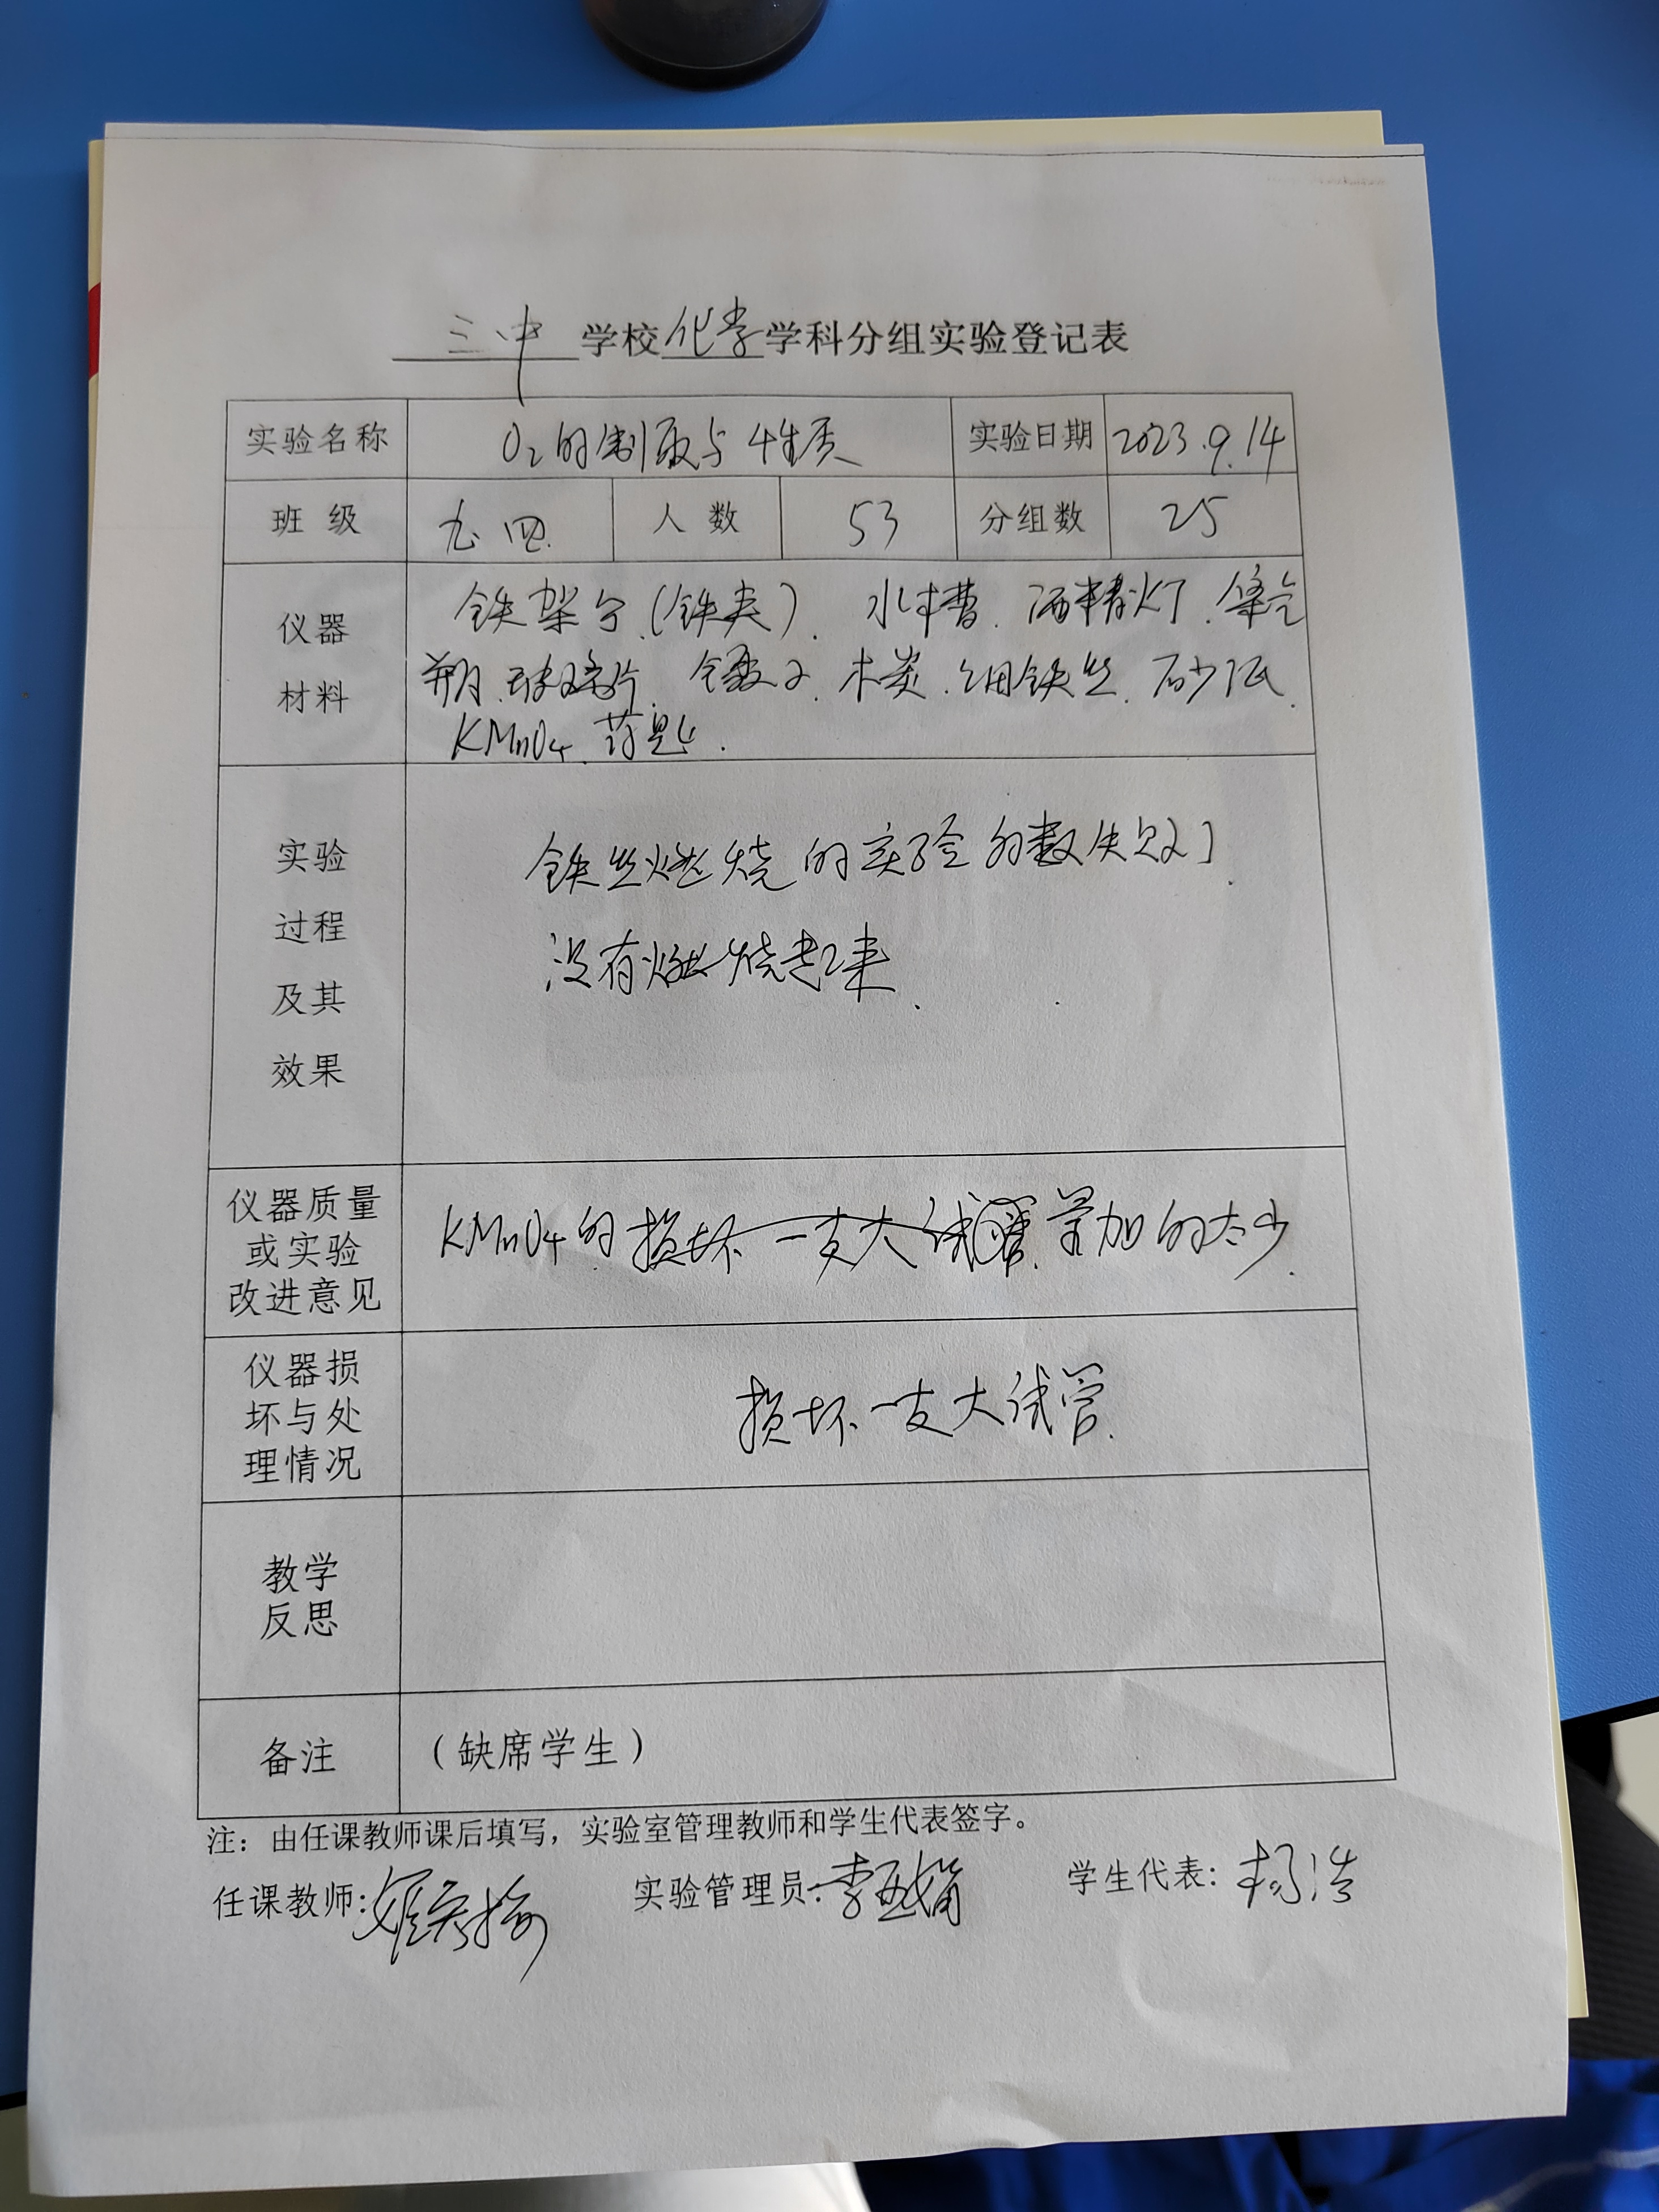 三中学校化学学科分组实验登记表
实验名称 O₂的制取与性质 实验日期 2023.9.14
班 级 九.四. 人 数 53 分组数 25
仪器
材料
铁架台(铁夹). 水槽. 酒精灯. 集气
瓶. 玻璃片. 镊子. 木炭. 细铁丝. 砂纸.
KMnO₄. 药匙.
实验
过程
及其
效果
铁丝燃烧的实验 失败了.
没有燃烧起来.
仪器质量
或实验
改进意见
KMnO₄的损坏一支大试管 量加的太少.
仪器损
坏与处
理情况
损坏一支大试管.
教学
反思
备注 (缺席学生)
注:由任课教师课后填写,实验室管理教师和学生代表签字。
任课教师: 实验管理员: 学生代表:杨浩